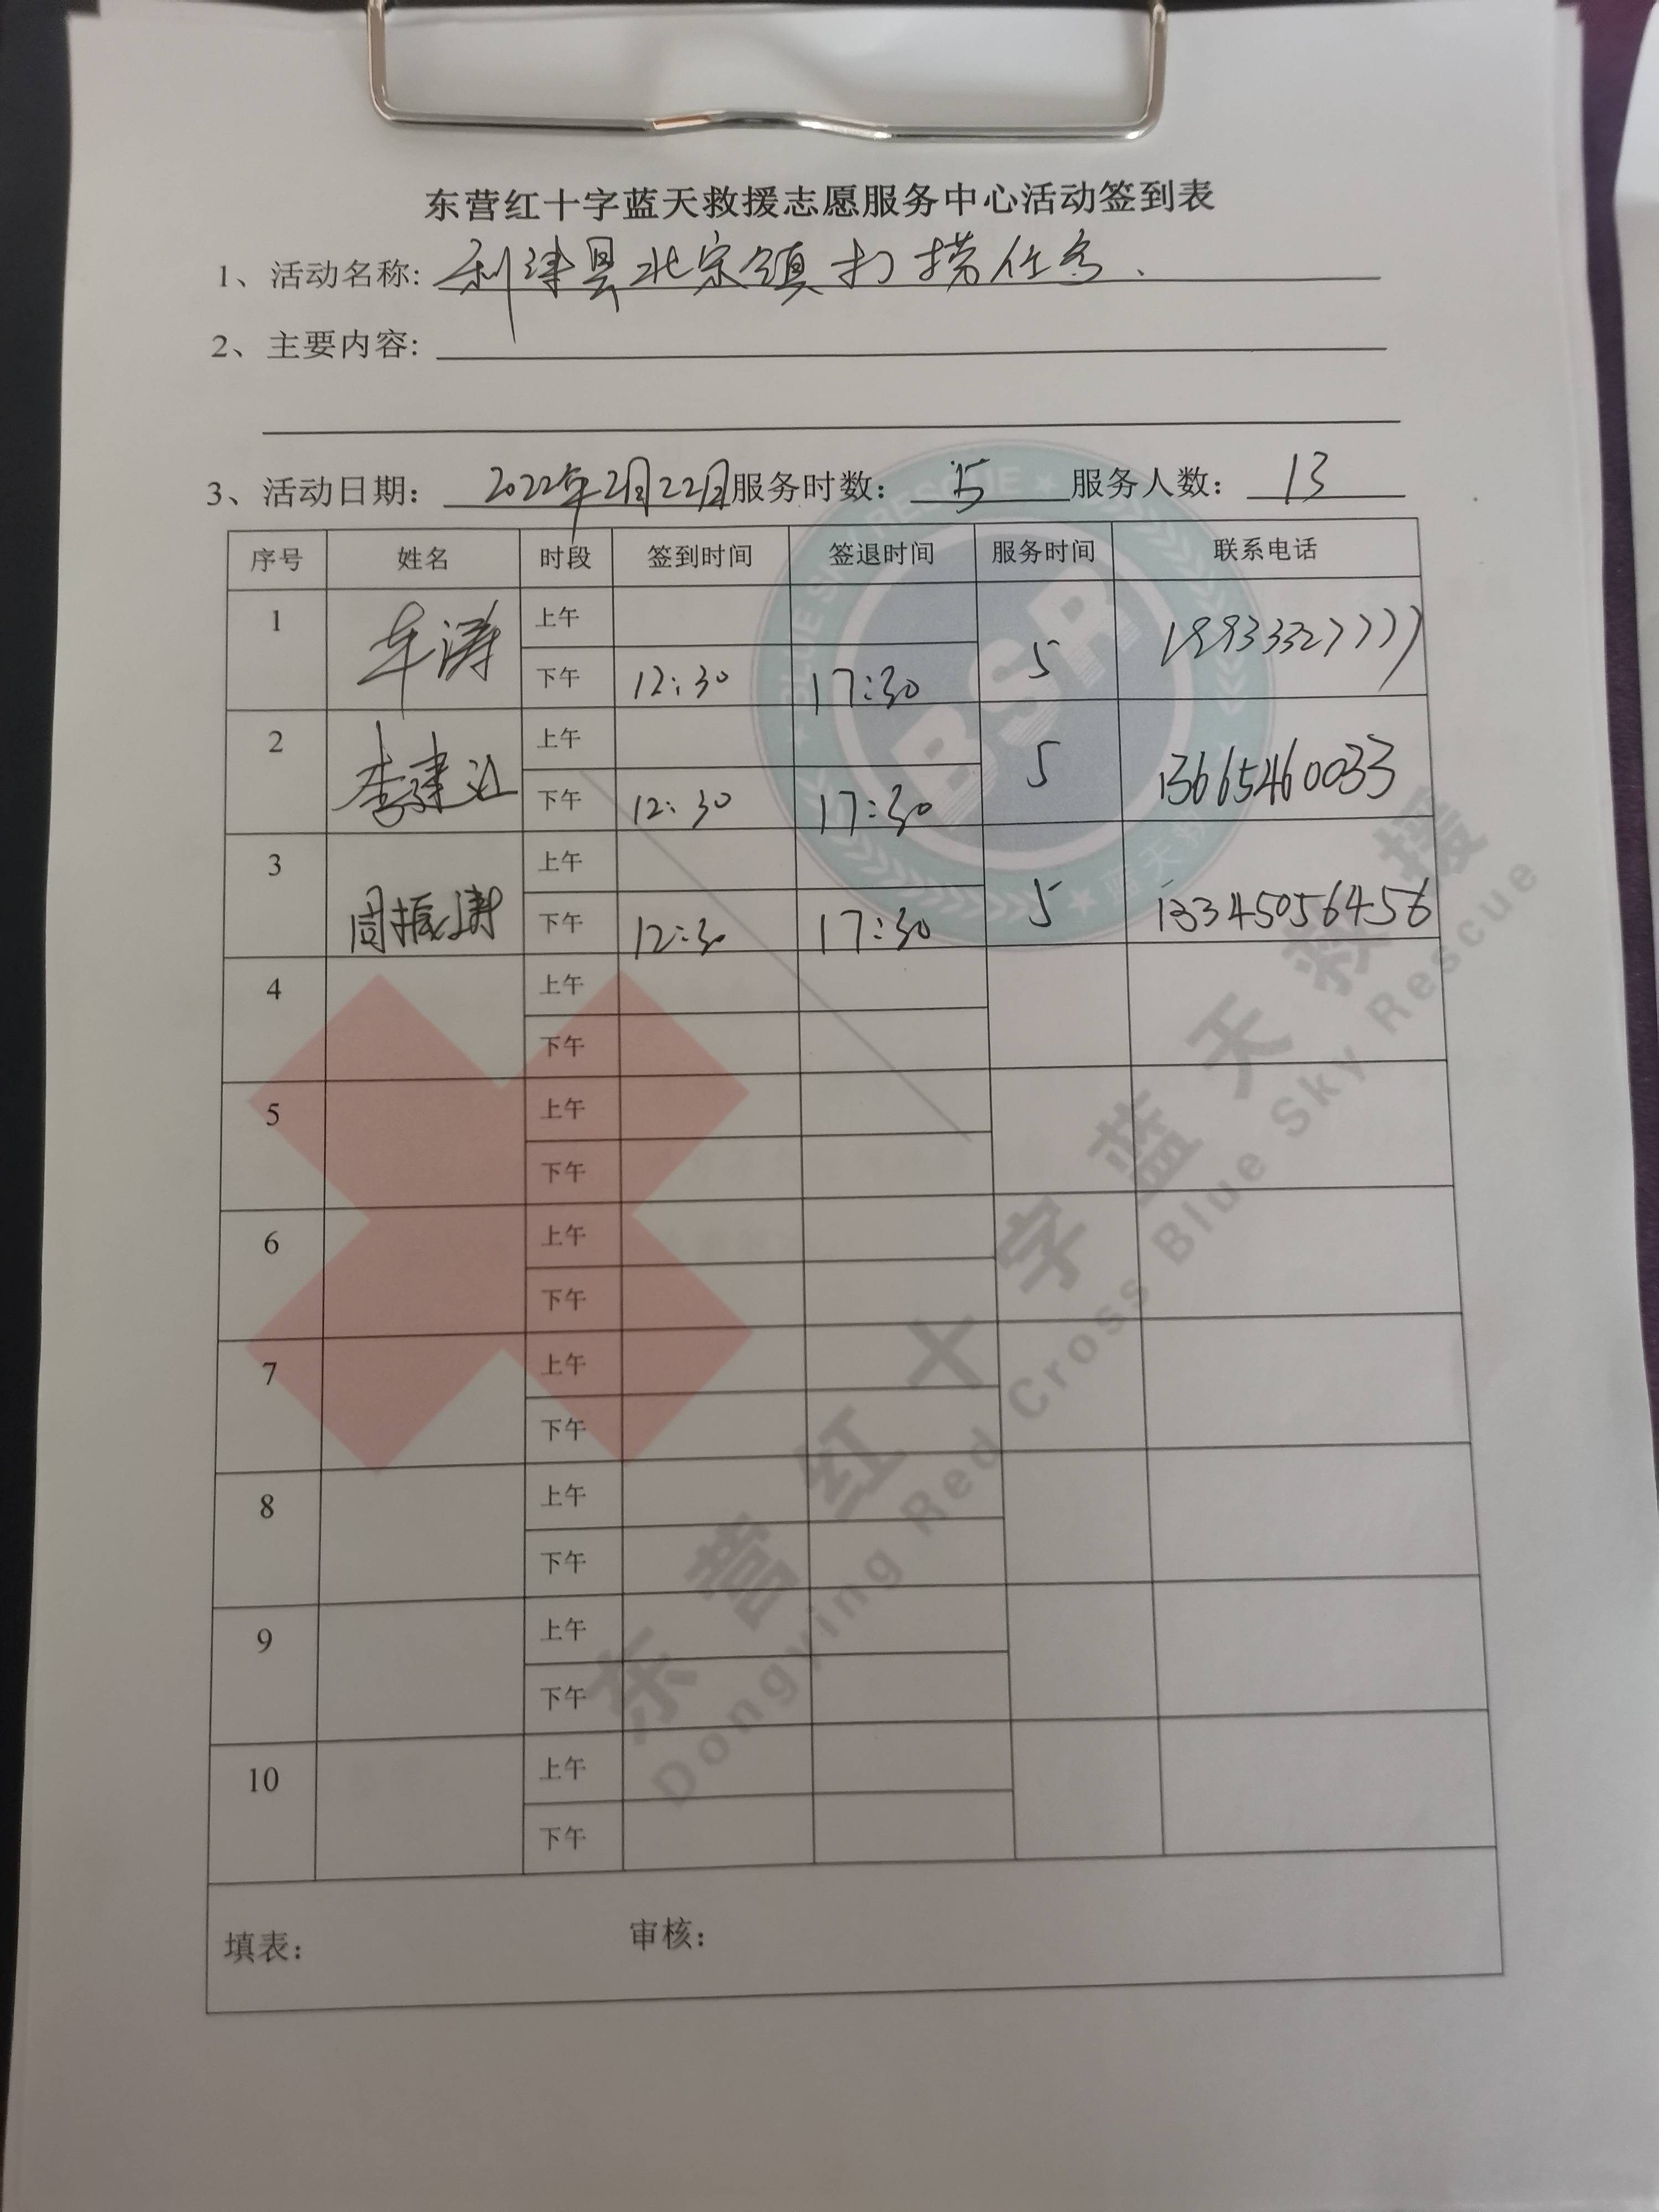 东营红十字蓝天救援志愿服务中心活动签到表
1、活动名称: 利津县北宋镇打捞任务.
2、主要内容:
3、活动日期: 2022年2月22日 服务时数: 5 服务人数: 13
序号 姓名 时段 签到时间 签退时间 服务时间 联系电话
1 车涛 上午
下午 12:30 17:30 5
2 李建 上午
下午 12:30 17:30 5 13665460033
3 周振 上午
下午 12:30 17:30 5 13345056456
4 上午
下午
5 上午
下午
6 上午
下午
7 上午
下午
8 上午
下午
9 上午
下午
10 上午
下午
填表: 审核:
BLUE SKY RESCUE
BSR
蓝天救
东营红十字蓝天救援
Dongying Red Cross Blue Sky Rescue